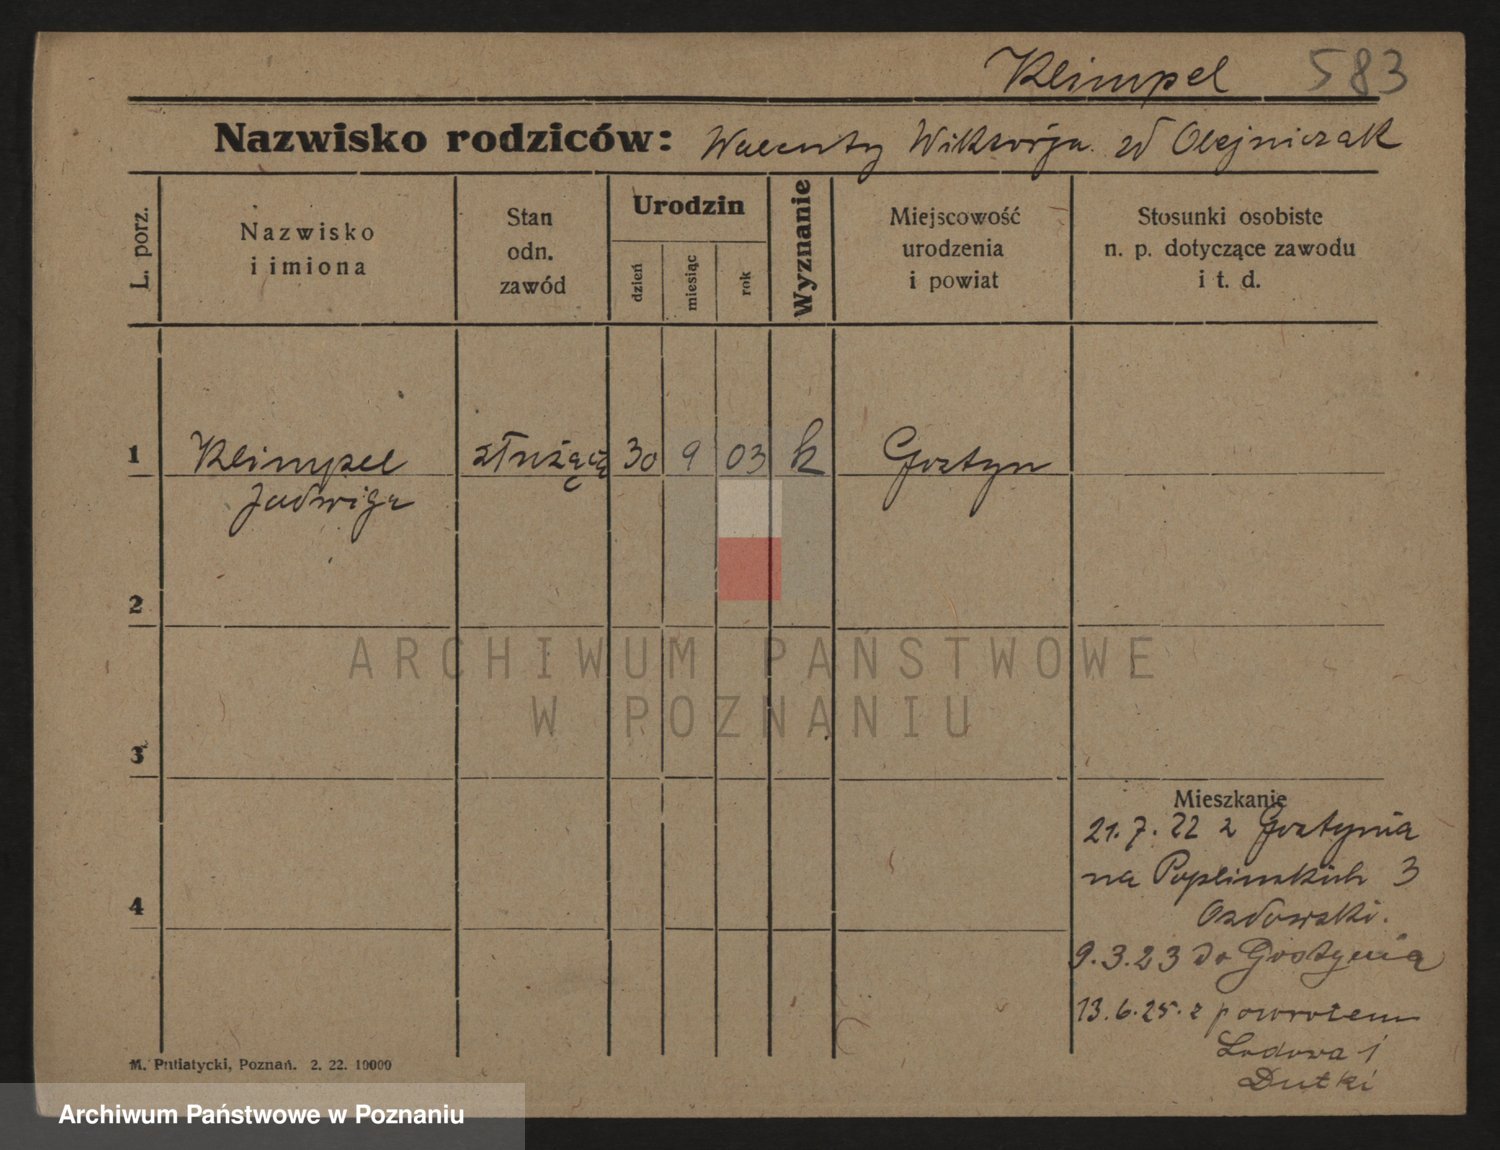 Klimpel 583
Nazwisko rodziców: Walenty Wiktorja zd Olejniczak
L. porz.
Nazwisko
i imiona
Stan
odn.
zawód
Urodzin
dzień
miesiąc
rok
Wyznanie
Miejscowość
urodzenia
i powiat
Stosunki osobiste
n. p. dotyczące zawodu
i t. d.
1 Klimpel służącą 30 9 03 k Gostyn
Jadwiga
2
3
4
ARCHIWUM PAŃSTWOWE
W POZNANIU
Mieszkanie
21.7.22 z Gostynia
na Poplinskich 3
9.3.23 do Gostynia
13.6.25. z powrotem
Lodowa 1
Dutki
M. Putiatycki, Poznań. 2. 22. 10000
Archiwum Państwowe w Poznaniu